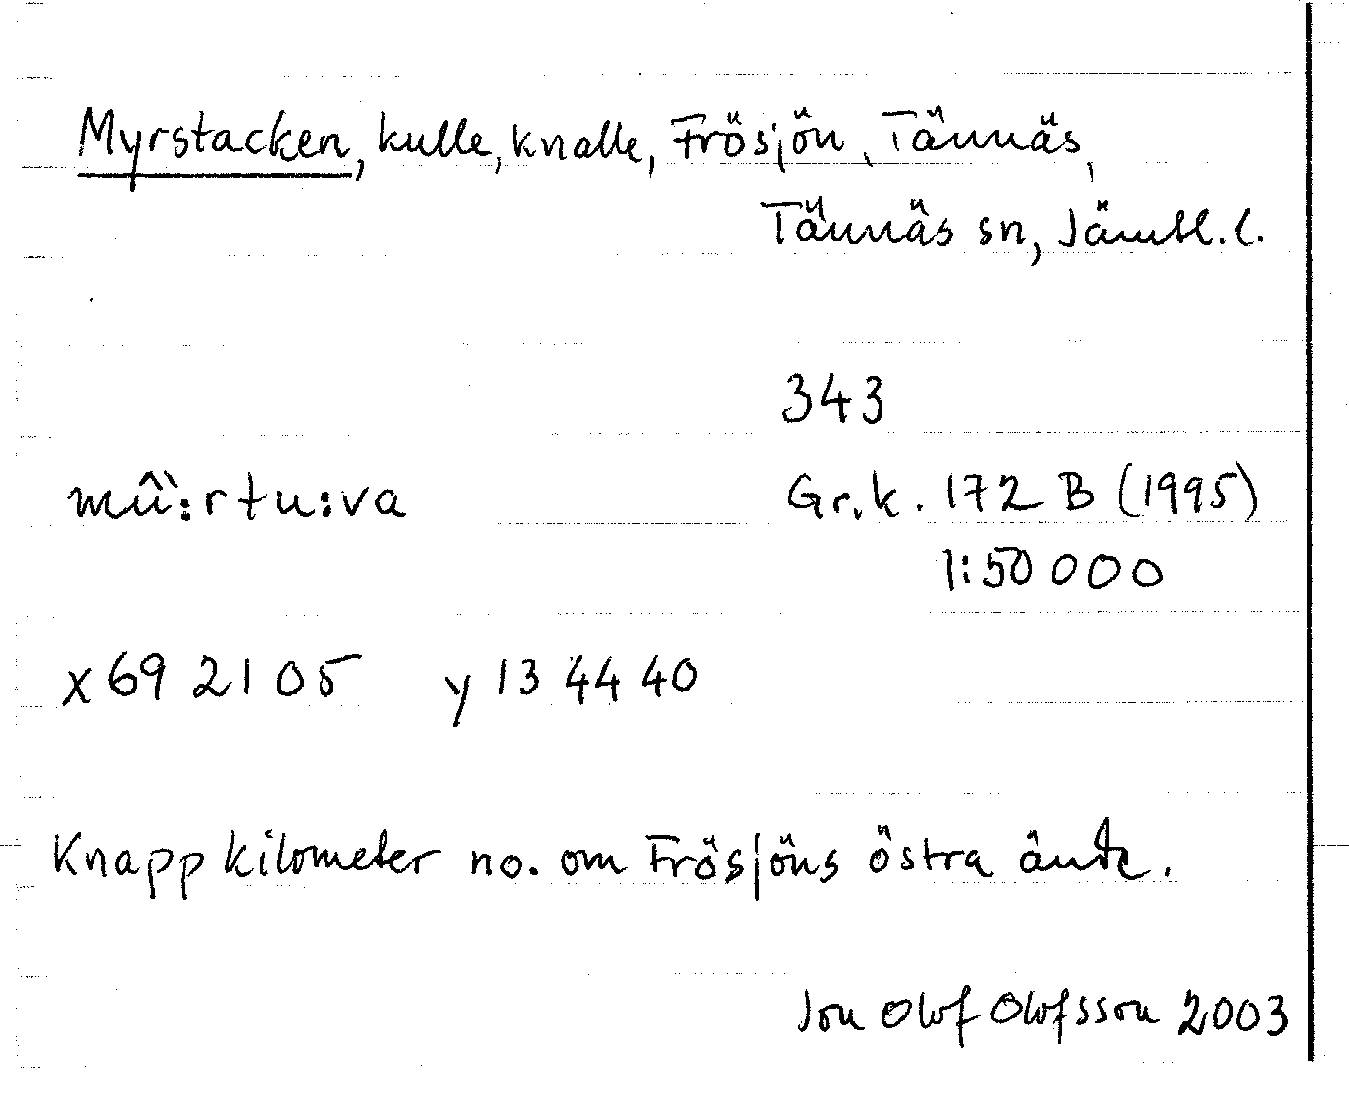 Myrstacken, kulle, knalle, Frösjön, Tännäs,
Tännäs sn, Jämtl. l.
343
mû̀:rtu:va
Gr.k. 172 B (1995)
1:50 000
x 69 21 05 y 13 44 40
Knapp kilometer no. om Frösjöns östra ände.
Jon Olof Olofsson 2003